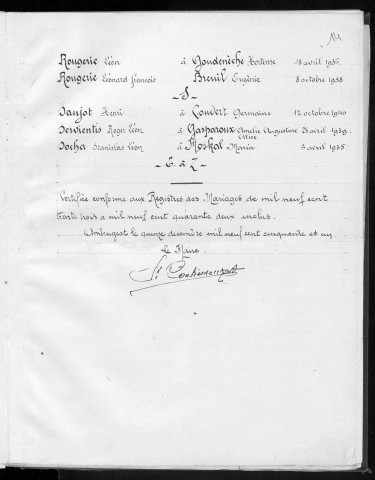 Rougerie Léon à Goudenèche Hortense 18 avril 1936.
Rougerie Léonard François à Breuil Eugénie 8 octobre 1938
- S -
Saujot Henri à Couvert Germaine 12 octobre 1940
Servientis Roger Léon à Gasparoux Amélie Augustine 28 avril 1939.
Socha Stanislas Léon à Moskal Maria 6 avril 1935
- T à Z -
Certifiée conforme aux Registres des Mariages de mil neuf cent
trente trois à mil neuf cent quarante deux inclus.
Ambrugeat le quinze décembre mil neuf cent cinquante et un
Le Maire